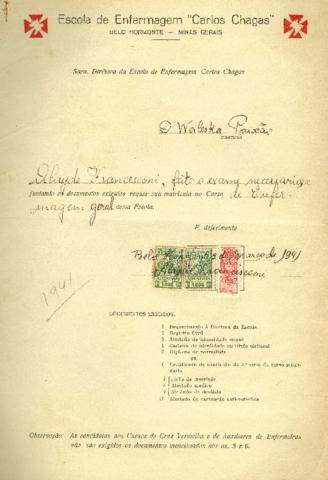 Escola de Enfermagem "Carlos Chagas"
BELO HORIZONTE — MINAS GERAIS
Snra. Diretora da Escola de Enfermagem Carlos Chagas
D. Waleska Paixão
Alayde Francesconi, feito o exame necessario e
juntando os documentos exigidos requer sua matricula no Curso de Enfer-
magem geral dessa Escola.
P. deferimento
Belo Horizonte de Março de 1941
Alayde Francesconi
1941
DOCUMENTOS EXIGIDOS:
1 Requerimento á Diretora da Escola
2 Registro Civil
3 Atestado de idoneidade moral
4 Carteira de identidade ou titulo eleitoral
5 Diploma de normalista
ou
6 Certificado de curso
Atestado medico
Atestado de dentista
Atestado de vacinação
Observação: As candidatas aos Cursos da Cruz Vermelha e de Auxiliares de Enfermeiras
não são exigidos os documentos mencionados nos ns. 5 e 6.